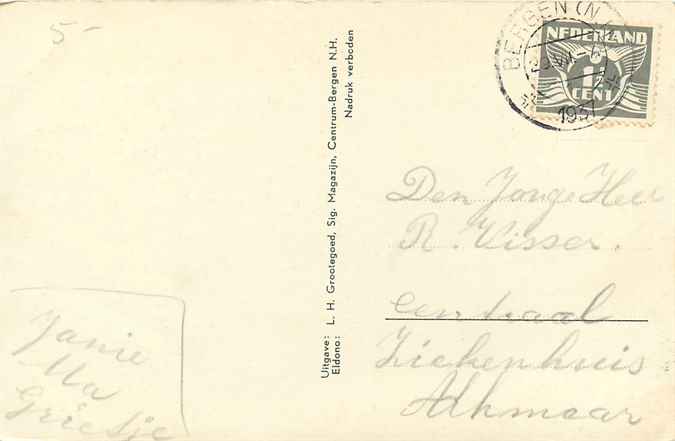 5-
BERGEN (N.
1937
NEDERLAND
1½
CENT
Uitgave: L. H. Grootegoed, Sig. Magazijn, Centrum-Bergen N.H.
Eldono: Nadruk verboden
Den Jonge Heer
R. Visser.
Centraal
Ziekenhuis
Alkmaar
Janie
Ma
Grietje